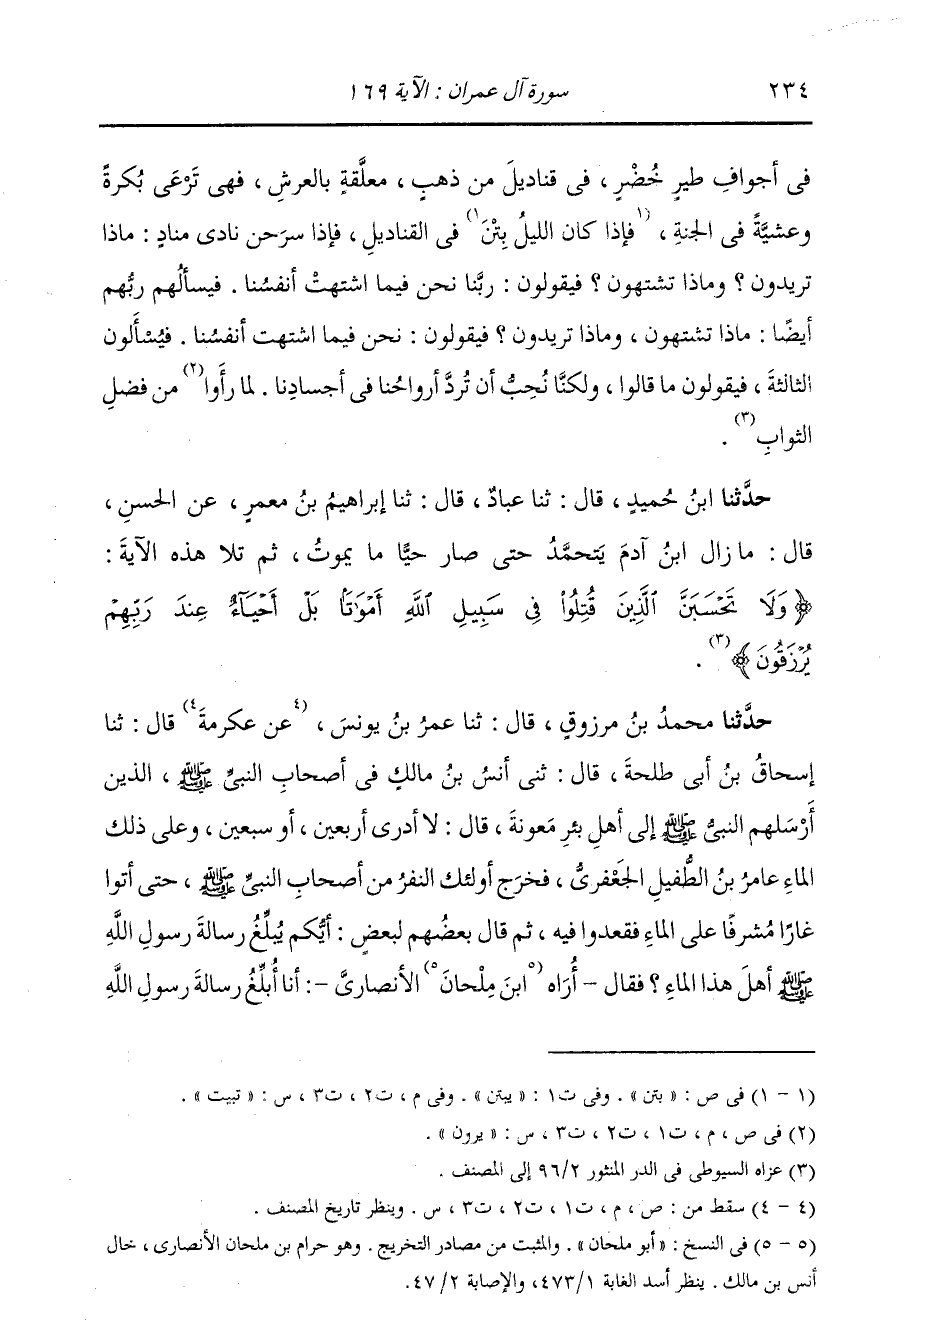 ٢٣٤ سورة آل عمران : الآية ١٦٩
فى أجوافِ طيرٍ خُضْرٍ ، فى قناديلَ من ذهبٍ ، معلَّقةٍ بالعرشِ ، فهى تَرْعَى بُكرةً
وعشيَّةً فى الجنةِ ، (١فإذا كان الليلُ بِتْنَ١) فى القناديلِ ، فإذا سرَحن نادى منادٍ : ماذا
تريدون ؟ وماذا تشتهون ؟ فيقولون : ربَّنا نحن فيما اشتهتْ أنفسُنا . فيسألُهم ربُّهم
أيضًا : ماذا تشتهون ، وماذا تريدون ؟ فيقولون : نحن فيما اشتهت أنفسُنا . فيُسْأَلون
الثالثةَ ، فيقولون ما قالوا ، ولكنَّا نُحِبُّ أن تُردَّ أرواحُنا فى أجسادِنا . لما رأَوا(٢) من فضلِ
الثوابِ(٣) .
حدَّثنا ابنُ حُميدٍ ، قال : ثنا عبادٌ ، قال : ثنا إبراهيمُ بنُ معمرٍ ، عن الحسنِ ،
قال : ما زال ابنُ آدمَ يَتحمَّدُ حتى صار حيًّا ما يموتُ ، ثم تلا هذه الآيةَ :
﴿ وَلَا تَحْسَبَنَّ ٱلَّذِينَ قُتِلُوا۟ فِى سَبِيلِ ٱللَّهِ أَمْوَٰتًۢا بَلْ أَحْيَآءٌ عِندَ رَبِّهِمْ
يُرْزَقُونَ ﴾(٣) .
حدَّثنا محمدُ بنُ مرزوقٍ ، قال : ثنا عمرُ بنُ يونسَ ، (٤عن عكرمةَ٤) قال : ثنا
إسحاقُ بنُ أبى طلحةَ ، قال : ثنى أنسُ بنُ مالكٍ فى أصحابِ النبىِّ ﷺ ، الذين
أَرْسَلهم النبىُّ ﷺ إلى أهلِ بئرِ مَعونةَ ، قال : لا أدرى أربعين ، أو سبعين ، وعلى ذلك
الماءِ عامرُ بنُ الطُّفيلِ الجَعْفرىُّ ، فخرَج أولئك النفرُ من أصحابِ النبىِّ ﷺ ، حتى أتوا
غارًا مُشرفًا على الماءِ فقعدوا فيه ، ثم قال بعضُهم لبعضٍ : أيُّكم يُبلِّغُ رسالةَ رسولِ اللَّهِ
ﷺ أهلَ هذا الماءِ ؟ فقال - أُرَاه (٥ابنَ مِلْحانَ٥) الأنصارىَّ -: أنا أُبلِّغُ رسالةَ رسولِ اللَّهِ
(١ - ١) فى ص : « بتن » . وفى ت١ : « يبتن » . وفى م ، ت٢ ، ت٣ ، س : « تبيت » .
(٢) فى ص ، م ، ت١ ، ت٢ ، ت٣ ، س : « يرون » .
(٣) عزاه السيوطى فى الدر المنثور ٩٦/٢ إلى المصنف .
(٤ - ٤) سقط من : ص ، م ، ت١ ، ت٢ ، ت٣ ، س . وينظر تاريخ المصنف .
(٥ - ٥) فى النسخ : « أبو ملحان » . والمثبت من مصادر التخريج . وهو حرام بن ملحان الأنصارى ، خال
أنس بن مالك . ينظر أسد الغابة ٤٧٣/١، والإصابة ٤٧/٢.